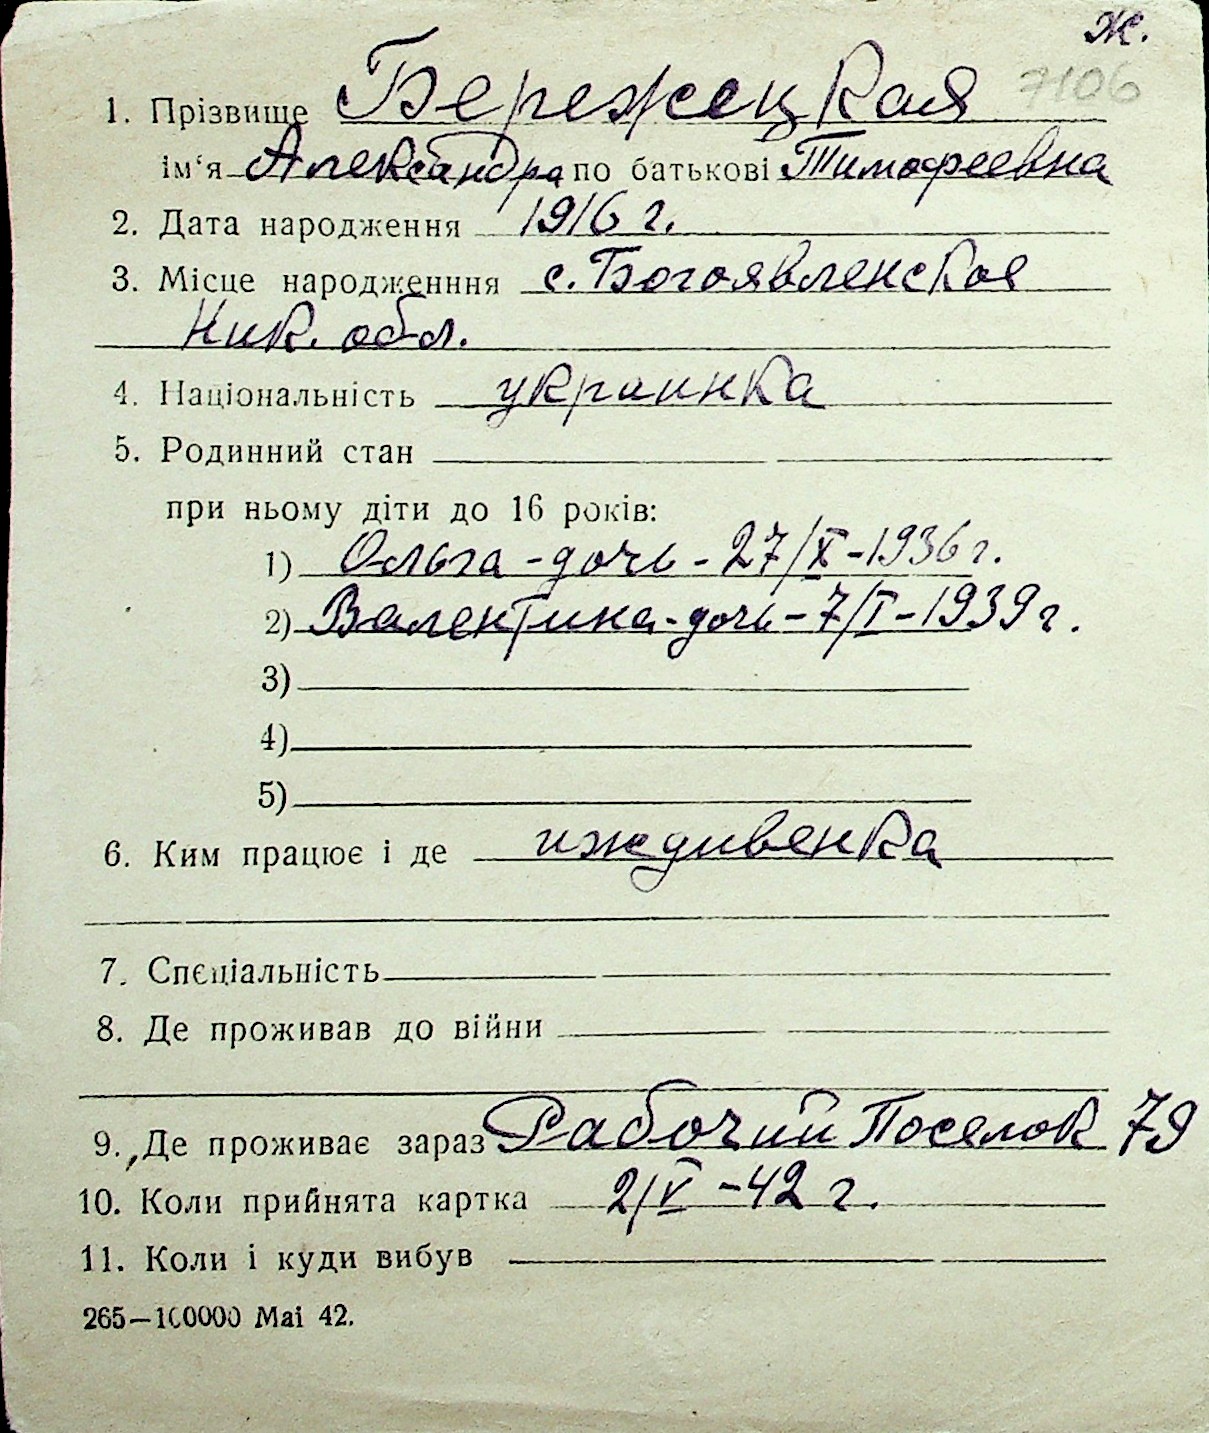 Ж.
7106
1. Прізвище Бережецкая
ім‘я Александра по батькові Тимофеевна
2. Дата народження 1916 г.
3. Місце народженння с. Богоявленское
Ник. обл.
4. Національність украинка
5. Родинний стан
при ньому діти до 16 років:
1) Ольга - дочь - 27/X - 1936 г.
2) Валентина - дочь - 7/I - 1939 г.
3)
4)
5)
6. Ким працює і де иждивенка
7. Спєціальність
8. Де проживав до війни
9. Де проживає зараз Рабочий Поселок 79
10. Коли прийнята картка 2/V - 42 г.
11. Коли і куди вибув
265—100000 Mai 42.